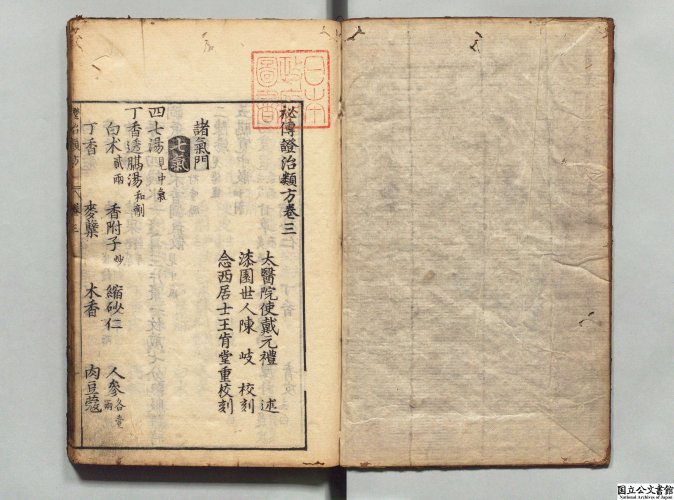 日本
政府
圖書
祕傳證治類方卷三
太醫院使戴元禮 述
漆園世人陳 岐 校刻
念西居士王肯堂重校刻
諸氣門
七氣
四七湯見中氣
丁香透膈湯和劑
白朮貳兩 香附子炒 縮砂仁 人參各壹兩
丁香 麥櫱 木香 肉豆蔻
國立公文書館
National Archives of Japan